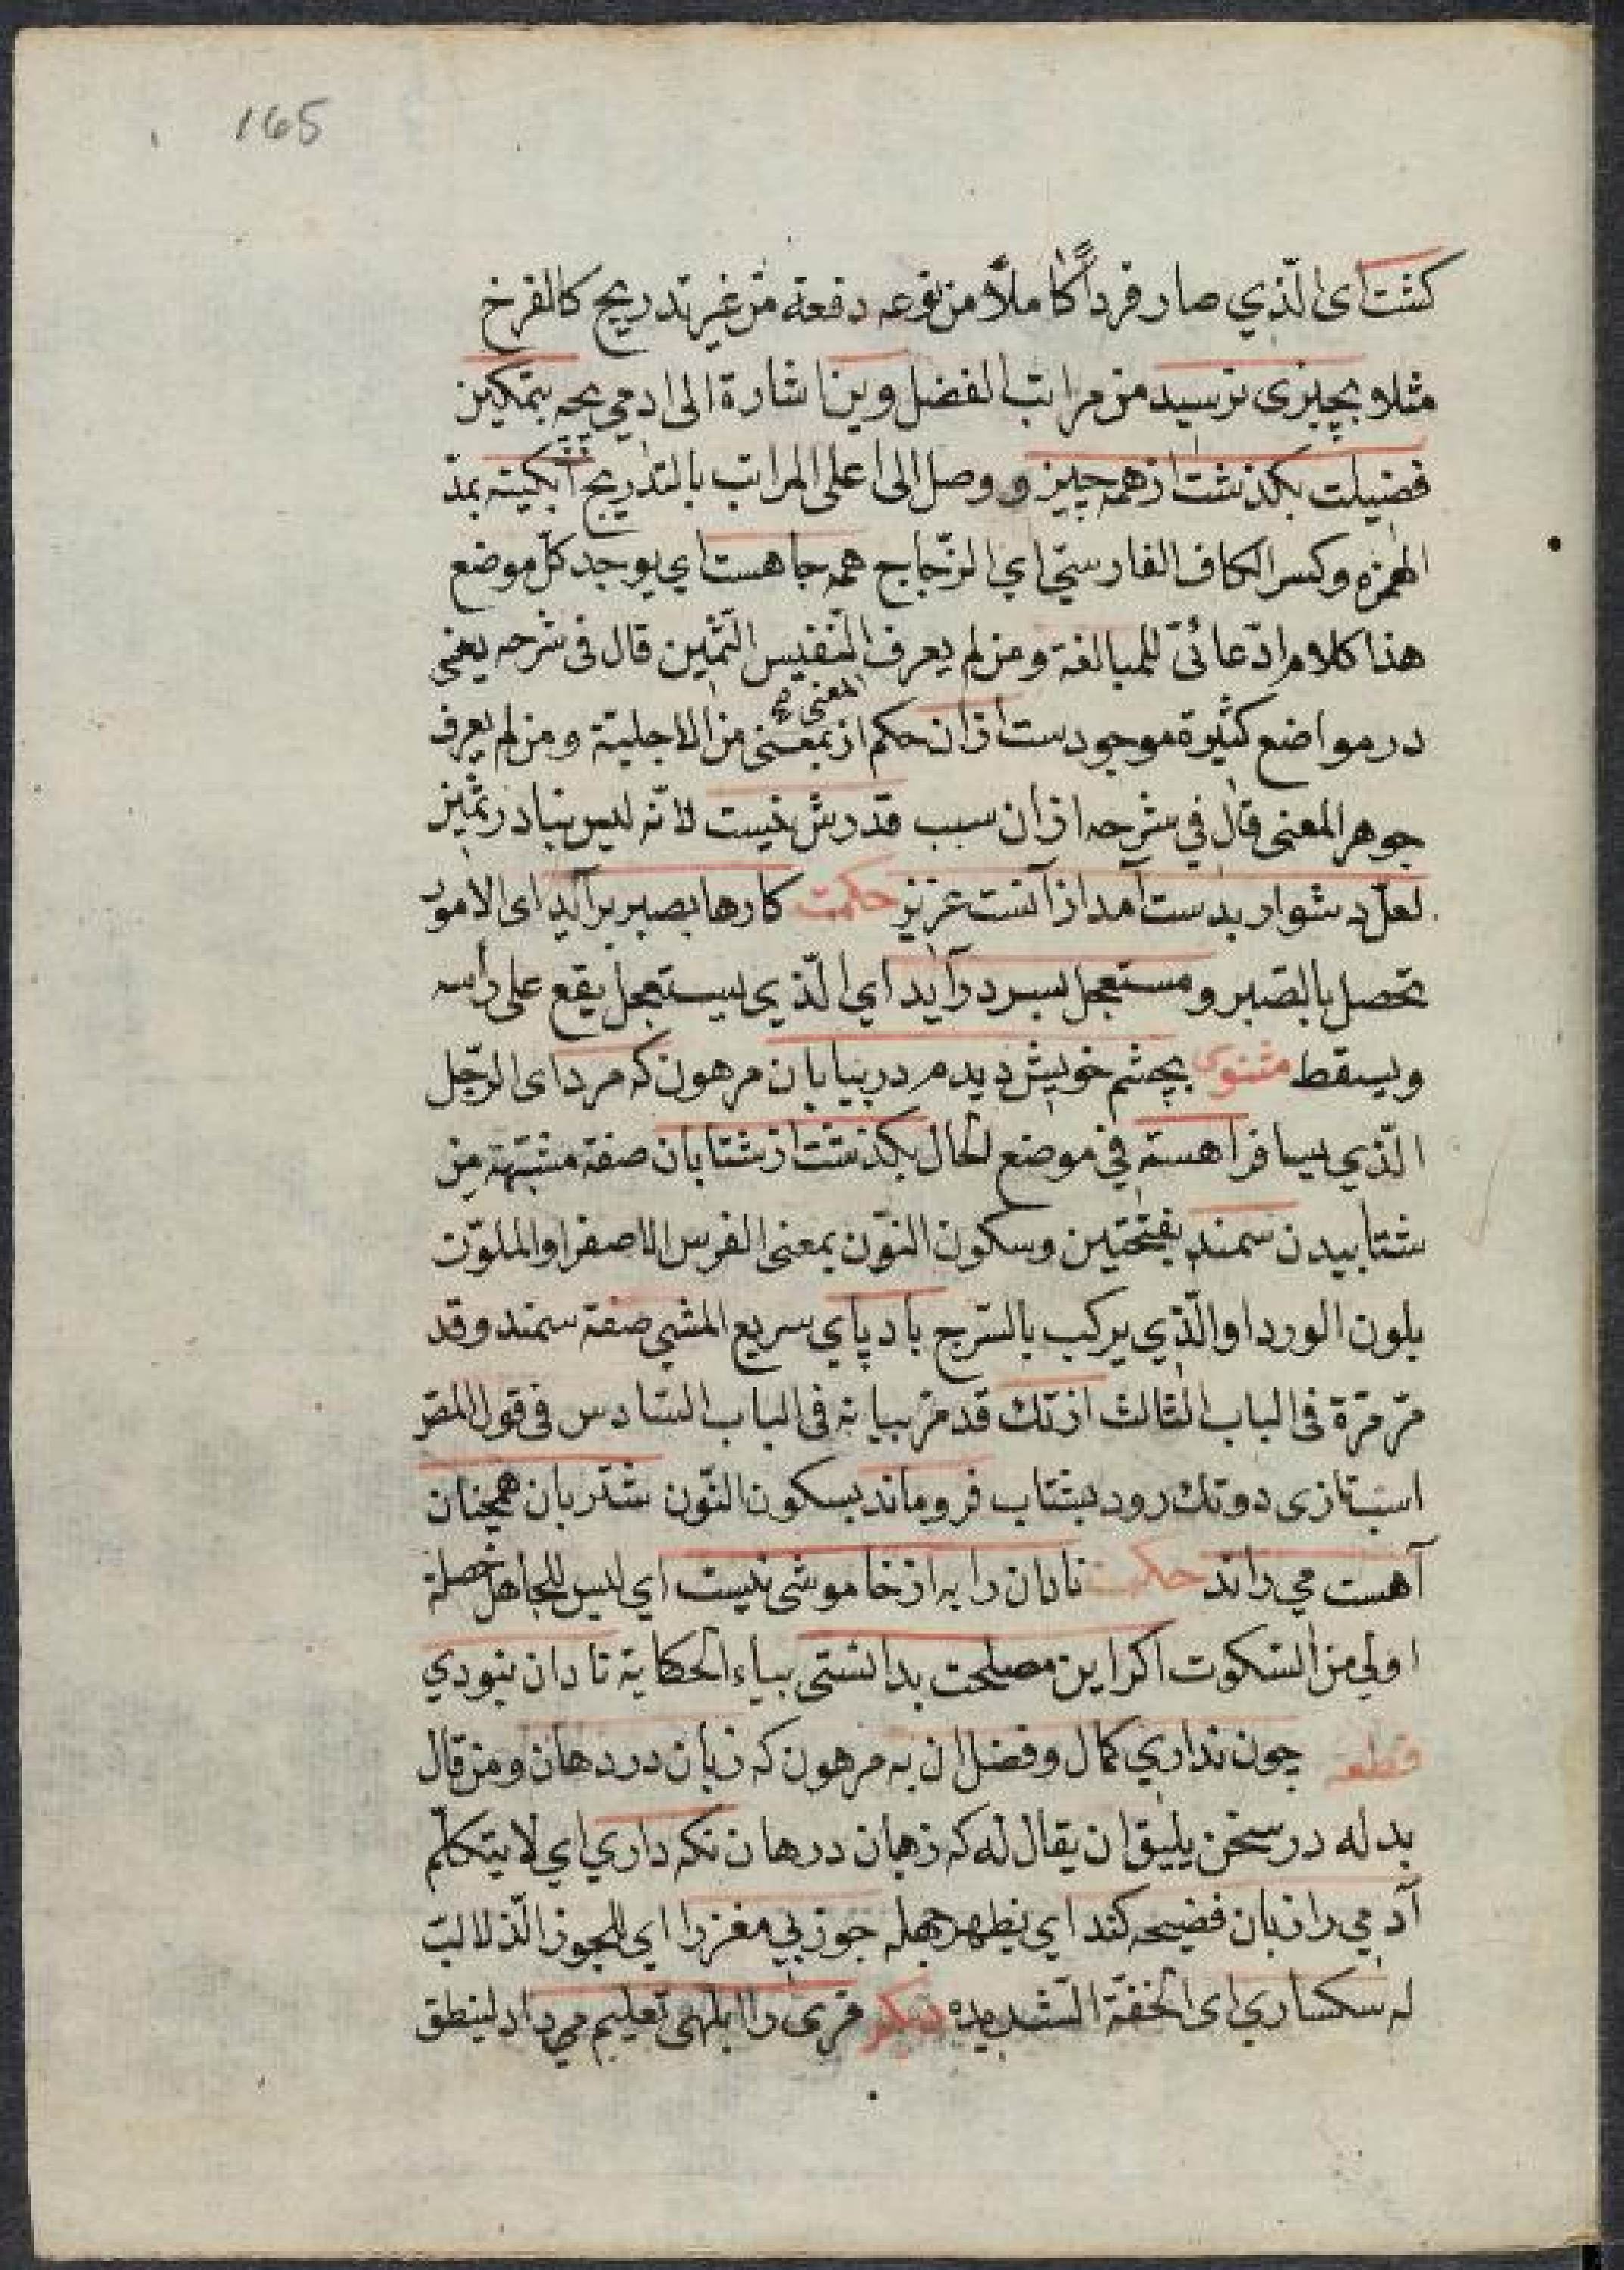 165
كشت اى الّذي صار فرداً كاملاً من نوعه دفعة من غير تدريج كالفرخ
مثلا وبچيزى نرسيد من مراتب الفضل وين اشارة الى ادمي بچه بتمكين
فضيلت بكذشت ازهمه چيز و وصل الى اعلى المراتب بالتدريج آبكينه بمد
الهمزه وكسر الكاف الفارسيّ اي الزّجاج همه جا هست اي يوجد كل موضع
هذا كلام ادّعائىّ للمبالغة ومن لم يعرف النّفيس الثّمين قال فى شرحه يعنى
در مواضع كثيرة موجودست ازان حكم از بمعنى من الاجلية ومن لم يعرف
المعنى صح
جوهر المعنى قال في شرحه ازان سبب قدرش نيست لانّه ليس بنادر ثمين
لعل دشوار بدست آمد ازانست عزيز حكمت كارها بصبر برآيد اى الامور
تحصل بالصّبر ومستعجل بسر درآيد اي الّذي يستعجل يقع على رأسه
ويسقط مثنوى بچشم خويش ديدم در بيابان مرهون كه مرد اى الرّجل
الّذي يسافر اهسته في موضع الحال بكذشت از شتابان صفة مشبّهة من
شتابيدن سمند بفتحتين وسكون النّون بمعنى الفرس الاصفر او الملوّن
بلون الورد او الّذي يركب بالسّرج باد پاي سريع المشي صفة سمند وقد
مرّ مرّة فى الباب الثالث ازتك قد مرّ بيانه فى الباب السّادس فى قول المص
اسب تازى دوتك رود بشتاب فروماند بسكون النّون شتربان همچنان
آهست مي راند حكمت نادان را به از خاموشى نيست اي ليس للجاهل خصلة
اولى من السّكوت اكر اين مصلحت بدانستى بياء الحكاية نادان نبودي
قطعه چون نداري كمال وفضل ان به مرهون كه زبان در دهان ومن قال
بدله در سخن يليق ان يقال له كه زهان درهان نكه داري اي لا يتكلّم
آدمي را زبان فضيحه كند اي يظهر جهله جوز بي مغز را اي للجوز الّذ لا لبّ
له سكساري اى الخفّة الشديده ديكر خرى را ابلهى تعليم مي داد لينطق